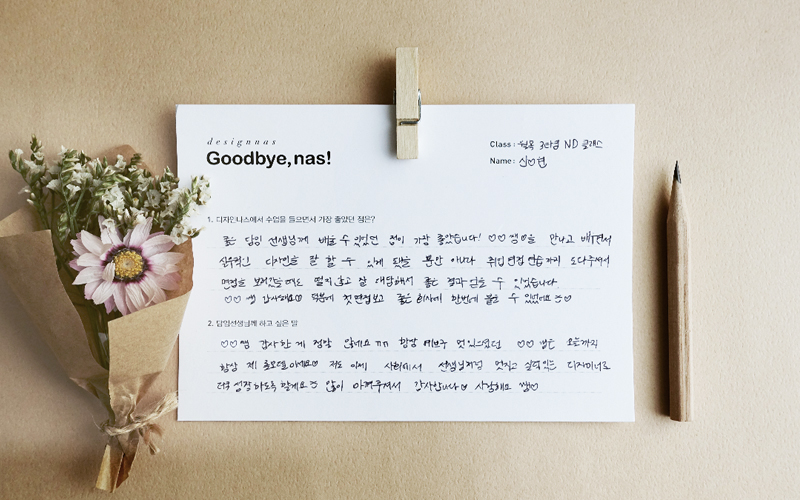 designnas
Goodbye, nas!
Class : 월목 3타임 ND 클래스
Name : 신♡현
1. 디자인나스에서 수업을 들으면서 가장 좋았던 점은?
좋은 담임 선생님께 배울 수 있었던 점이 가장 좋았습니다! ♡♡쌤♡을 만나고 배우면서
실무적인 디자인을 잘 할 수 있게 됐을 뿐만 아니라 취업 면접 연습까지 도와주셔서
면접을 보러갔을때도 떨지않고 잘 대답해서 좋은 결과 얻을 수 있었습니다
♡♡쌤 감사해요♡ 덕분에 첫 면접보고 좋은 회사에 한번에 붙을 수 있었네요
2. 담임선생님께 하고 싶은 말
♡♡쌤 감사한 게 정말 많네요 ㅠㅠ 항상 예쁘구 멋있으셨던 ♡♡ 쌤은 오늘까지
항상 제 롤모델이에요♡ 저도 이제 사회에서 선생님처럼 멋지고 실력있는 디자이너로
더욱 성장하도록 할게요 많이 아껴주셔서 감사합니다♡ 사랑해요 쌤♡